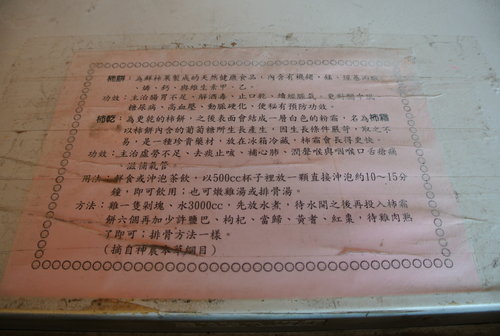 柿餅：為鮮柿果製成的天然健康食品，內含有機醣、鎂、胺基丙酸
、磷、鈣、與維生素甲、乙。
功效：主治腸胃不足、解酒毒、止口乾、續經脈氣。更對
糖尿病、高血壓、動脈硬化，便秘有預防功效。
柿乾：為更乾的柿餅，之後表面會結成一層白色的粉霜，名為柿霜
以柿餅內含的葡萄糖所生長產生，因生長條件嚴苛，取之不
易，是一種珍貴藥材，放在冰箱冷藏，柿霜會長得更快。
功效：主治虛勞不足、去痰止咳、補心肺、潤聲喉與咽喉口舌瘡痛
、滋補氣管。
用法：鮮食或沖泡茶飲，以500cc杯子裡放一顆直接沖泡約10～15分
鐘，即可飲用；也可燉雞湯或排骨湯。
方法：雞一隻剁塊、水3000cc，先放水煮，待水開之後再投入柿霜
餅六個再加少許鹽巴、枸杞、當歸、黃耆、紅棗，待雞肉熟
了即可；排骨方法一樣。
(摘自神農本草綱目)